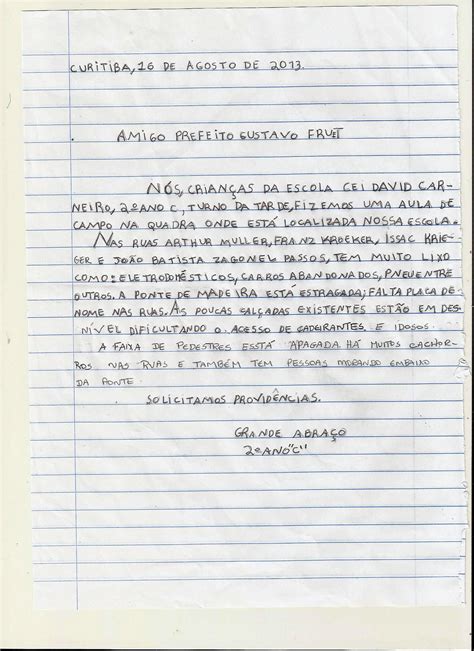 CURITIBA, 16 DE AGOSTO DE 2013.
AMIGO PREFEITO GUSTAVO FRUET
NÓS, CRIANÇAS DA ESCOLA CEI DAVID CAR-
NEIRO, 2º ANO C, TURNO DA TARDE, FIZEMOS UMA AULA DE
CAMPO NA QUADRA ONDE ESTÁ LOCALIZADA NOSSA ESCOLA.
NAS RUAS ARTHUR MULLER, FRANZ KROEKER, ISSAC KRIE-
GER E JOÃO BATISTA ZAGONEL PASSOS, TEM MUITO LIXO
COMO: ELETRODOMÉSTICOS, CARROS ABANDONADOS, PNEU ENTRE
OUTROS. A PONTE DE MADEIRA ESTÁ ESTRAGADA; FALTA PLACA DE
NOME NAS RUAS. AS POUCAS CALÇADAS EXISTENTES ESTÃO EM DES-
NÍVEL DIFICULTANDO O ACESSO DE CADEIRANTES E IDOSOS.
A FAIXA DE PEDESTRES ESSTÁ APAGADA. HÁ MUITOS CACHOR-
ROS NAS RUAS E TAMBÉM TEM PESSOAS MORANDO EMBAIXO
DA PONTE.
SOLICITAMOS PROVIDÊNCIAS.
GRANDE ABRAÇO
2º ANO "C"